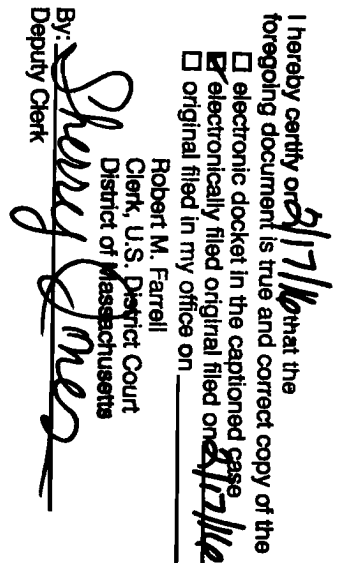 I hereby certify on 2/17/16 that the
foregoing document is true and correct copy of the
☐ electronic docket in the captioned case
☑ electronically filed original filed on 2/17/16
☐ original filed in my office on
Robert M. Farrell
Clerk, U.S. District Court
District of Massachusetts
By: Sherry Jones
Deputy Clerk